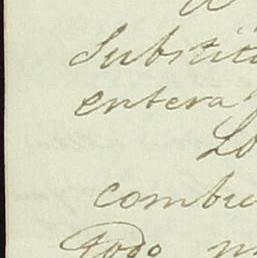 Substitu
entera
Lo
combu
Todo m